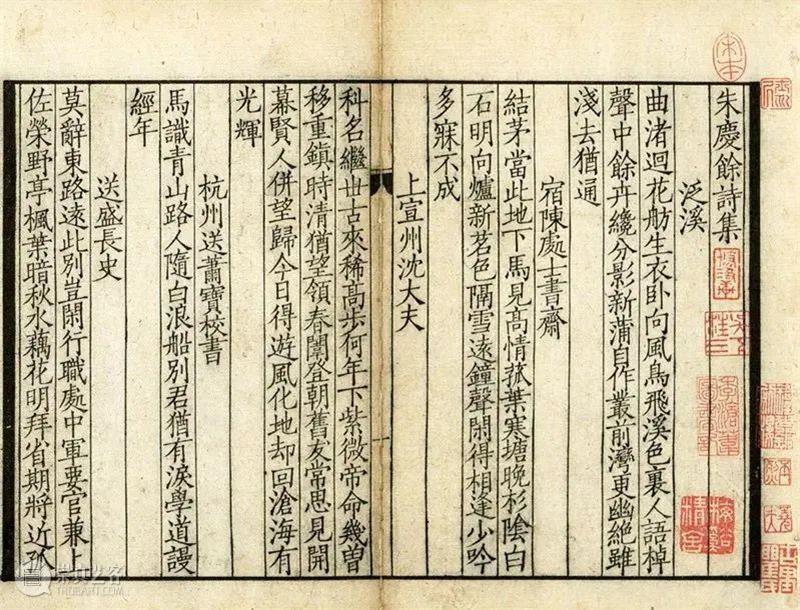 朱慶餘詩集
泛溪
曲渚迴花舫生衣卧向風鳥飛溪色裏人語棹
聲中餘卉纔分影新蒲自作叢前灣更幽絶雖
淺去猶通
宿陳處士書齋
結茅當此地下馬見髙情菰葉寒塘晚杉陰白
石明向爐新茗色隔雪遠鐘聲閑得相逢少吟
多寐不成
上宣州沈大夫
科名繼世古來稀髙步何年下紫微帝命幾曽
移重鎮時清猶望領春闈登朝舊友常思見開
幕賢人併望歸今日得遊風化地却回滄海有
光輝
杭州送蕭寶校書
馬識青山路人隨白浪船别君猶有淚學道謾
經年
送盛長史
莫辭東路遠此别豈閑行職處中軍要官兼上
佐榮野亭楓葉暗秋水藕花明拜省期將近孤
宋本